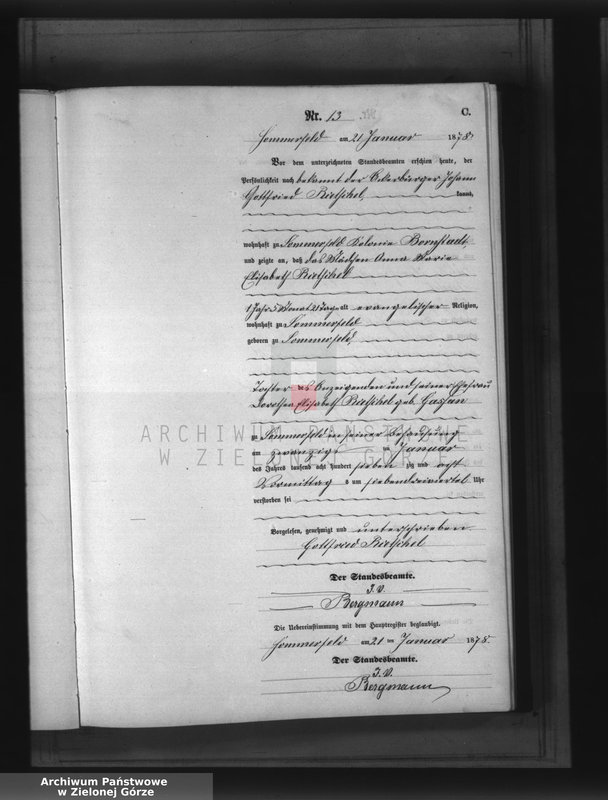 Nr. 13 C.
Sommerfeld am 21 Januar 1878
Vor dem unterzeichneten Standesbeamten erschien heute, der
Persönlichkeit nach bekannt der Ackerbürger Johann
Gottfried kannt,
wohnhaft zu Sommerfeld Kolonie Bornstadt,
und zeigte an, daß das Mädchen Anna Marie
Elisabeth
1 Jahr 5 Monat 21 Tage alt evangelischer Religion,
wohnhaft zu Sommerfeld
geboren zu Sommerfeld,
Tochter des Anzeigenden und seiner Ehefrau
Dorothea Elisabeth geb.
zu Sommerfeld in seiner Behausung
am zwanzigsten Januar
des Jahres tausend acht hundert sieben zig und acht
Vormittags um siebendreiviertel Uhr
verstorben sei
Vorgelesen, genehmigt und unterschrieben
Gottfried
Der Standesbeamte.
I. V.
Bergmann
Die Uebereinstimmung mit dem Hauptregister beglaubigt.
Sommerfeld am 21 ten Januar 1878
Der Standesbeamte.
I. V.
Bergmann
ARCHIWUM PAŃSTWOWE
W ZIELONEJ GÓRZE
Archiwum Państwowe
w Zielonej Górze